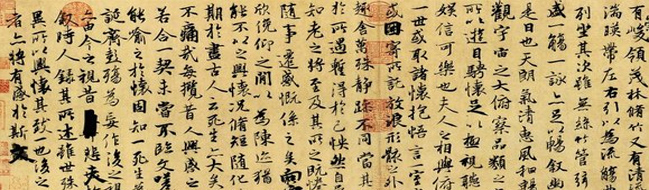 有峻領茂林脩竹又有清流
湍暎帶左右引以為流觴曲
列坐其次雖無絲竹管弦
盛一觴一詠亦足以暢敘
是日也天朗氣清惠風和暢
觀宇宙之大俯察品類之
所以遊目騁懷足以極視聽
娛信可樂也夫人之相與俯
一世或取諸懷抱悟言一室
或因寄所託放浪形骸之外
趣舍萬殊靜躁不同當其
於所遇暫得於己怏然自
知老之將至及其所之既惓
隨事遷感慨係之矣向
欣俛仰之閒以為陳迹猶
能不以之興懷況脩短隨化
期於盡古人云死生亦大矣
不痛哉每攬昔人興感之
若合一契未嘗不臨文嗟
能喻之於懷固知一死生
誕齊彭殤為妄作後之視
由今之視昔悲夫
敘時人錄其所述雖世殊
異所以興懷其致一也後之
者亦將有感於斯文